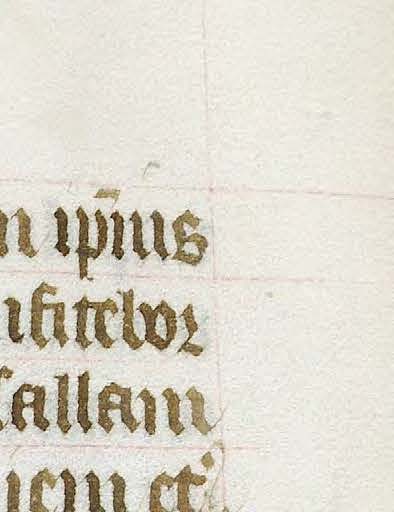 n ip̄ius
fitebor
sallam
et